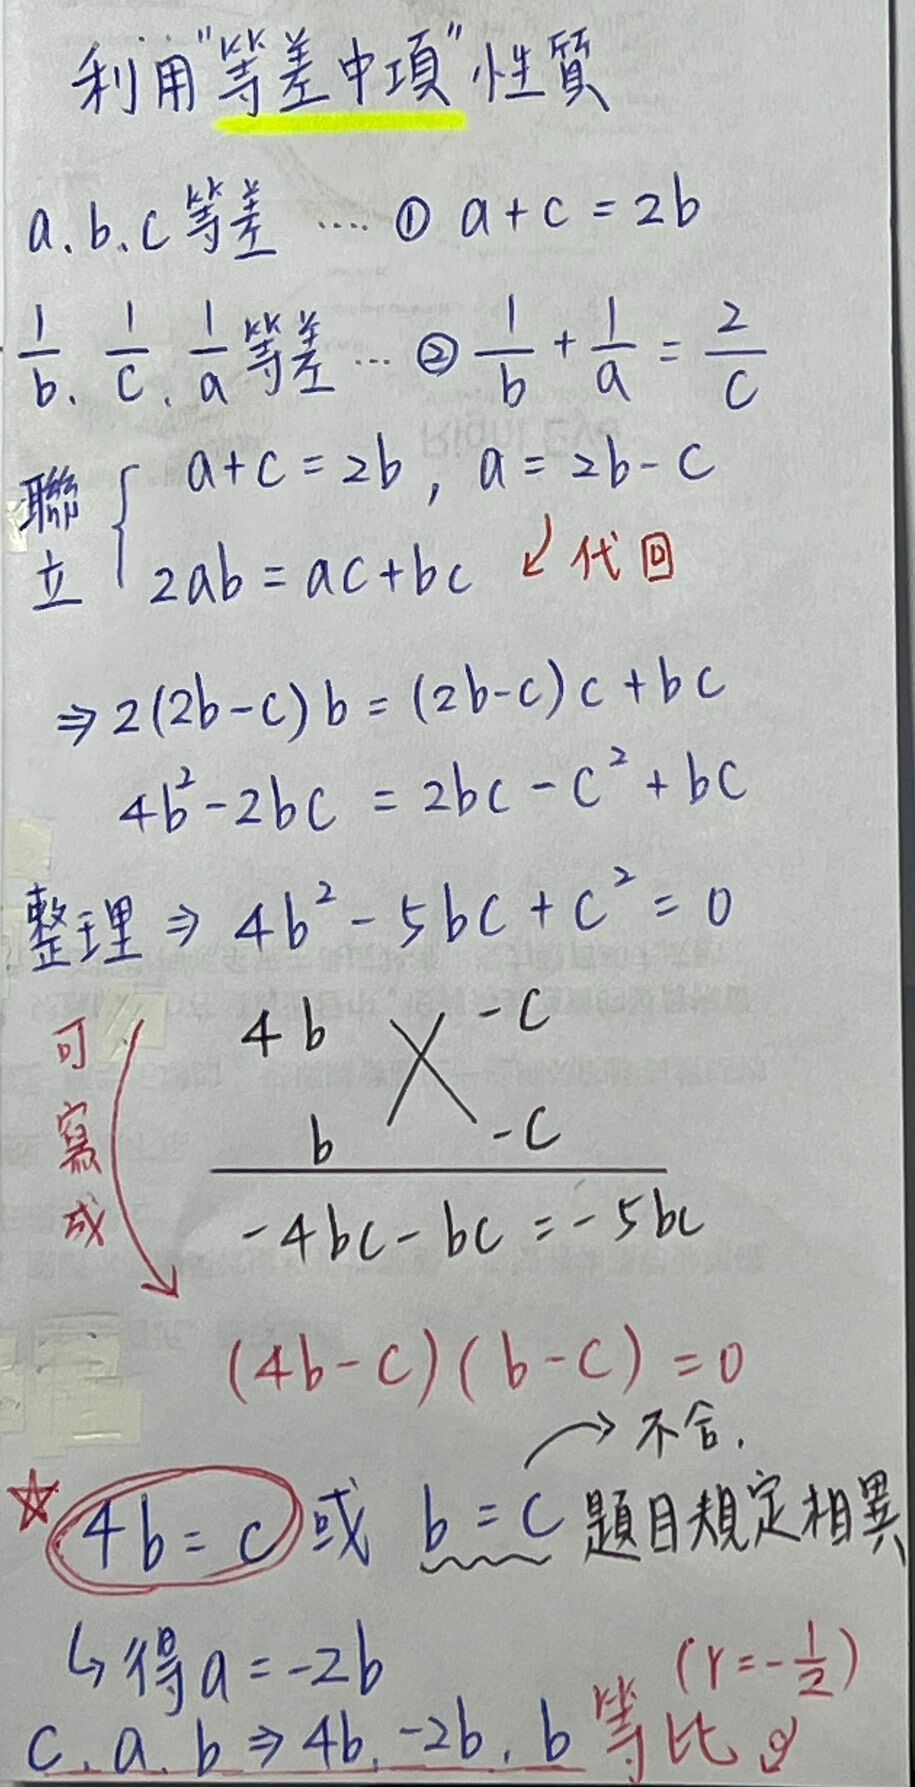 利用"等差中項"性質
a、b、c等差 ‥‥ ① a+c=2b
1/b、1/c、1/a等差 … ② 1/b + 1/a = 2/c
聯立 { a+c=2b , a=2b-c
2ab=ac+bc ↙代回
⇒2(2b-c)b=(2b-c)c+bc
4b²-2bc = 2bc-c²+bc
整理⇒ 4b²-5bc+c²=0
可寫成
4b -c
b -c
-4bc-bc=-5bc
(4b-c)(b-c)=0
→不合.
☆ 4b=c 或 b=c 題目規定相異
↳得a=-2b
(r=-1/2)
c、a、b⇒4b、-2b、b 等比